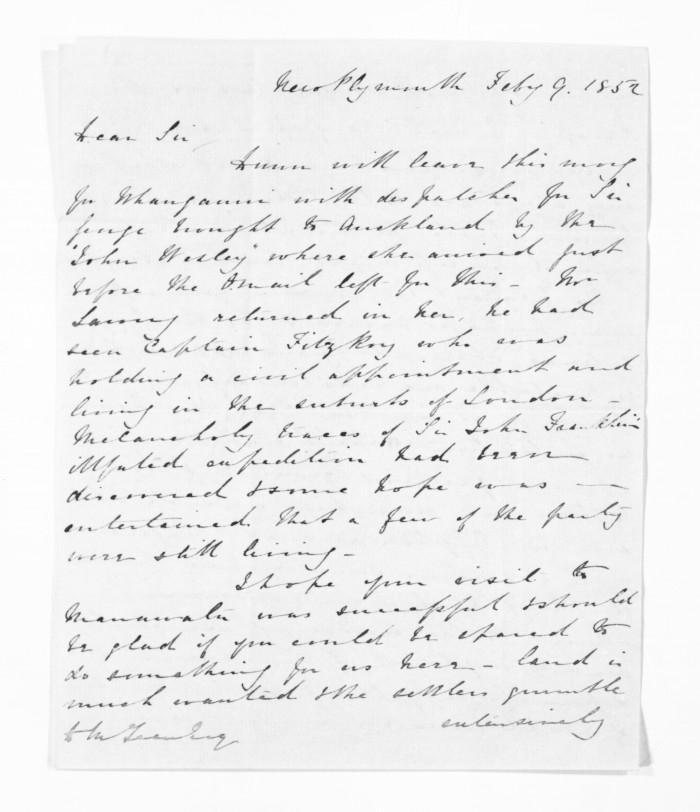 New Plymouth Feby 9. 1852
Dear Sir
will leave this morng
for Whanganui with despatches for Sir
George brought to Auckland by the
"John Wesley" where she arrived just
before the Omail left for this - Mr
returned in her, he had
seen Captain FitzRoy who was
holding a civil appointment and
living in the suburbs of London -
Melancholy traces of Sir John Franklin's
illfated expedition had been
discovered & some hope was —
entertained that a few of the party
were still living -
I hope your visit to
Manawatu was successful & should
be glad if you could be spared to
do something for us here - land is
much wanted & the settlers grumble
extensively
D McLean Esq